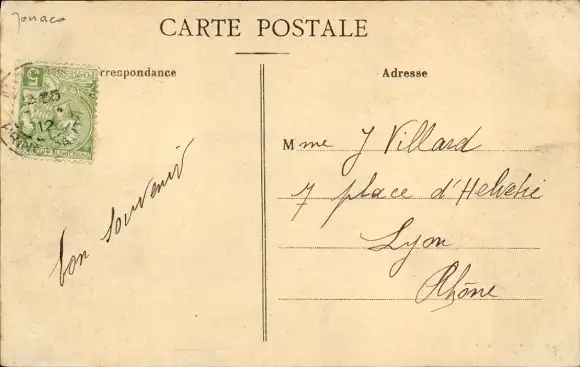 Monaco
CARTE POSTALE
rrespondance
Adresse
Mme J Villard
7 place d'Helvétie
Lyon
Rhône
bon souvenir